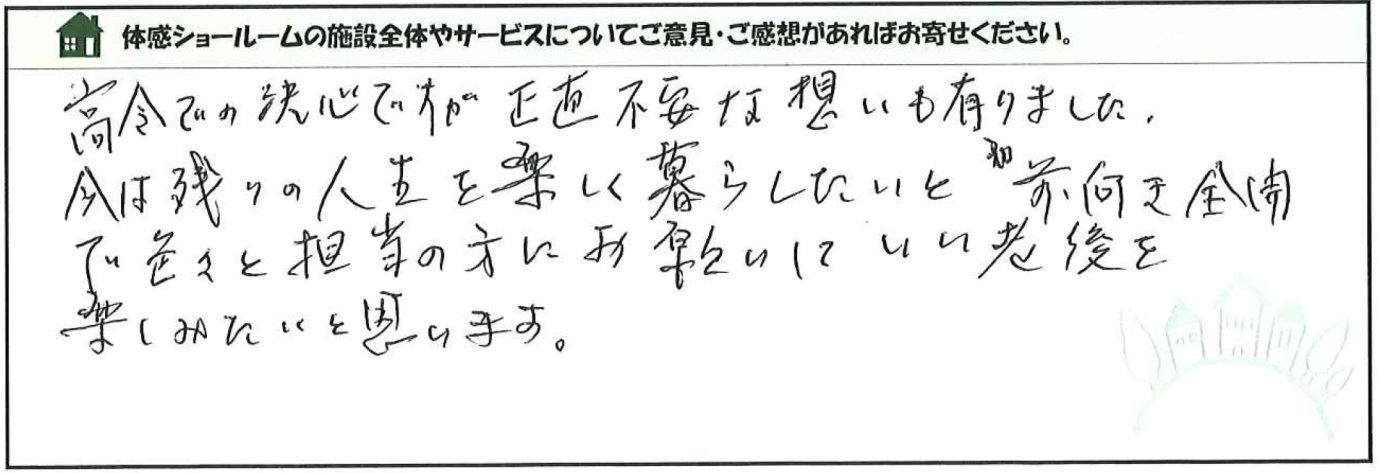 体感ショールームの施設全体やサービスについてご意見・ご感想があればお寄せください。
高令での決心ですが正直不安な想いも有りました。
今は残りの人生を楽しく暮らしたいと 前向き全開
で色々と担当の方にお願いしていい老後を
楽しみたいと思います。